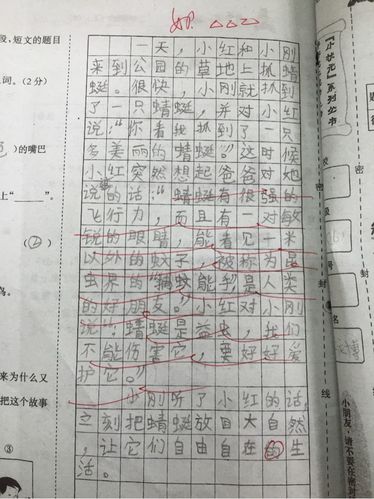 段，短文的题
词。（2分）
）的嘴巴
上“______”。
（2）
鸟。
来为什么又
把这个故事
③
一天，小红和小刚
来到公园的草地上抓蜻
蜓。很快，小刚就抓到
了一只蜻蜓，并对小红
说：“你看我抓到了一只
多美丽的蜻蜓。”这时候
小红突然想起爸爸对她
说的话：“蜻蜓有很强的
飞行力，而且有一对敏
锐的眼睛，能看见一米
以外的蚊子，被称为昆
虫界的“捕蚊能手”是人类
的好朋友。”小红对小刚
说：“蜻蜓是益虫，我们
不能伤害它，要好好爱
护它。”
小刚听了小红的话
之刻把蜻蜓放回大自然
，让它们自由自在的生
活。
『小状元』系列丛书
密
封
线
小朋友，请不要在密封